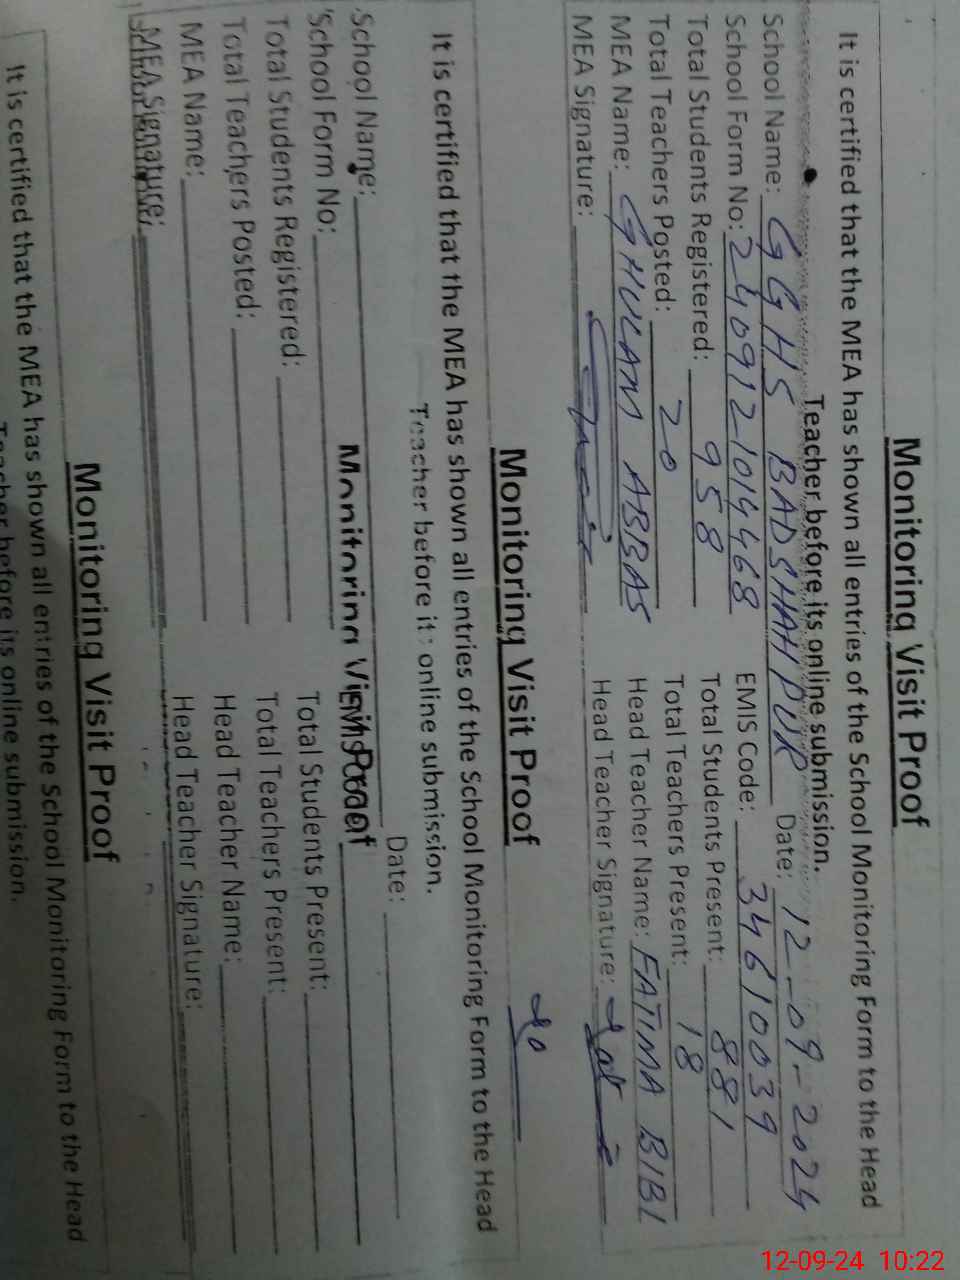 Monitoring Visit Proof
It is certified that the MEA has shown all entries of the School Monitoring Form to the Head
Teacher before its online submission.
School Name: GGHS BADSHAH PUR Date: 12-09-2024
School Form No: 2409121014468 EMIS Code: 34610039
Total Students Registered: 958 Total Students Present: 881
Total Teachers Posted: 20 Total Teachers Present: 18
MEA Name: GHULAM ABBAS Head Teacher Name: FATIMA BIBI
MEA Signature: Head Teacher Signature:
Monitoring Visit Proof
It is certified that the MEA has shown all entries of the School Monitoring Form to the Head
Teacher before its online submission.
School Name: Date:
School Form No: Monitoring Visit Proof
Total Students Registered: Total Students Present:
Total Teachers Posted: Total Teachers Present:
MEA Name: Head Teacher Name:
MEA Signature: Head Teacher Signature:
Monitoring Visit Proof
It is certified that the MEA has shown all entries of the School Monitoring Form to the Head
Teacher before its online submission.
12-09-24 10:22